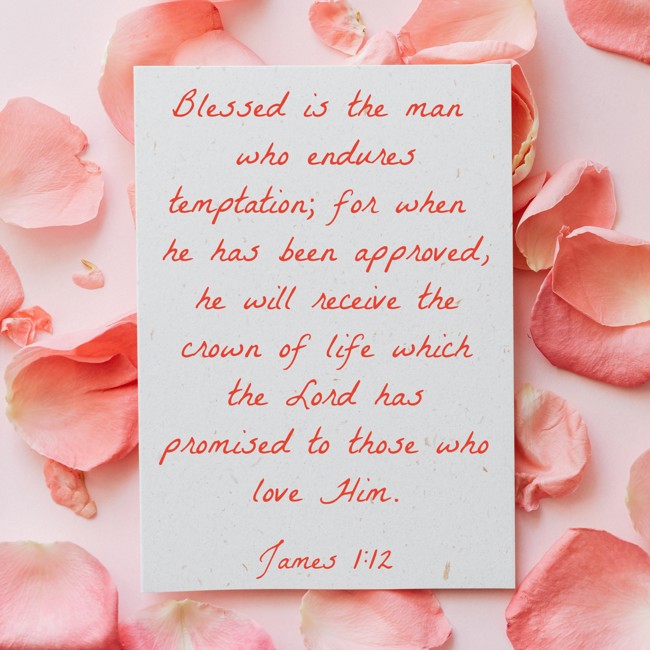 Blessed is the man
who endures
temptation; for when
he has been approved,
he will receive the
crown of life which
the Lord has
promised to those who
love Him.
James 1:12